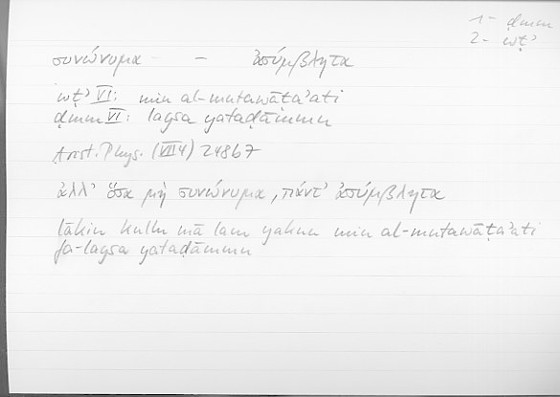 1- ḍmm
2- wṭʾ
συνώνυμα — ἀσύμβλητα
wṭʾ VI: min al-mutawāṭaʾati
ḍmm VI: laysa yataḍāmmu
Arist. Phys. (VII 4) 248b7
ἀλλ' ὅσα μὴ συνώνυμα, πάντ' ἀσύμβλητα
lākin kullu mā lam yakun min al-mutawāṭaʾati
fa-laysa yataḍāmmu